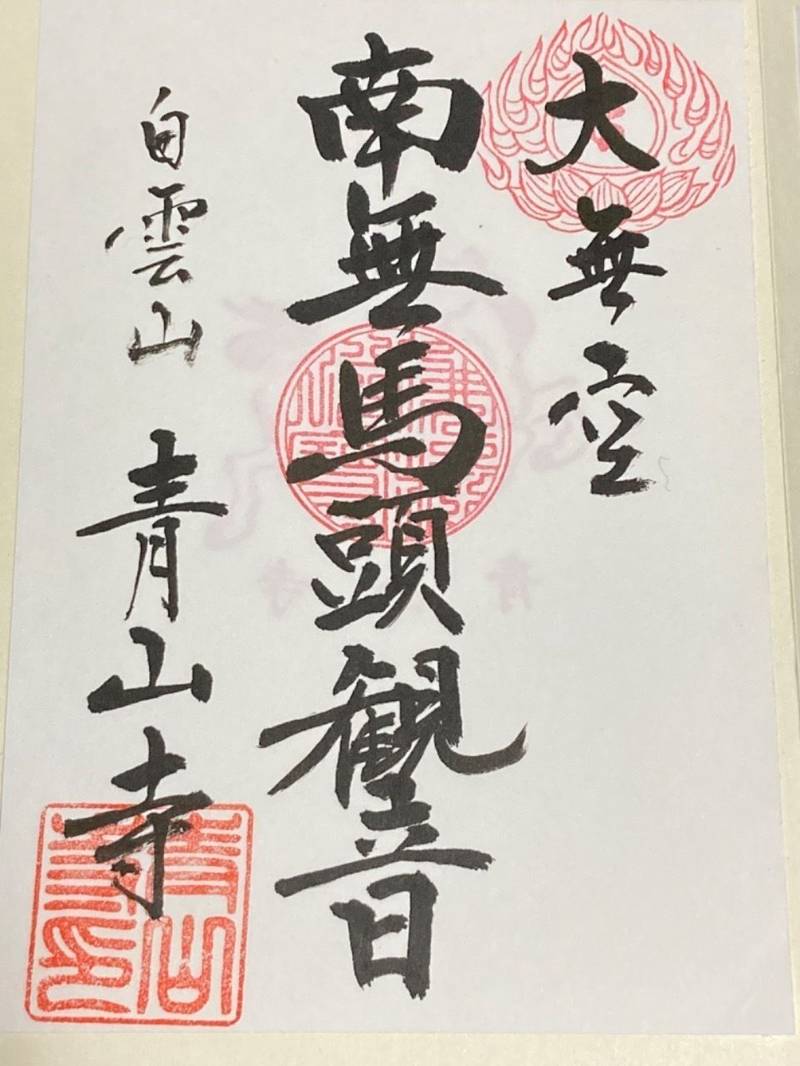 大無空
南無馬頭観音
白雲山 青山寺
青山寺印